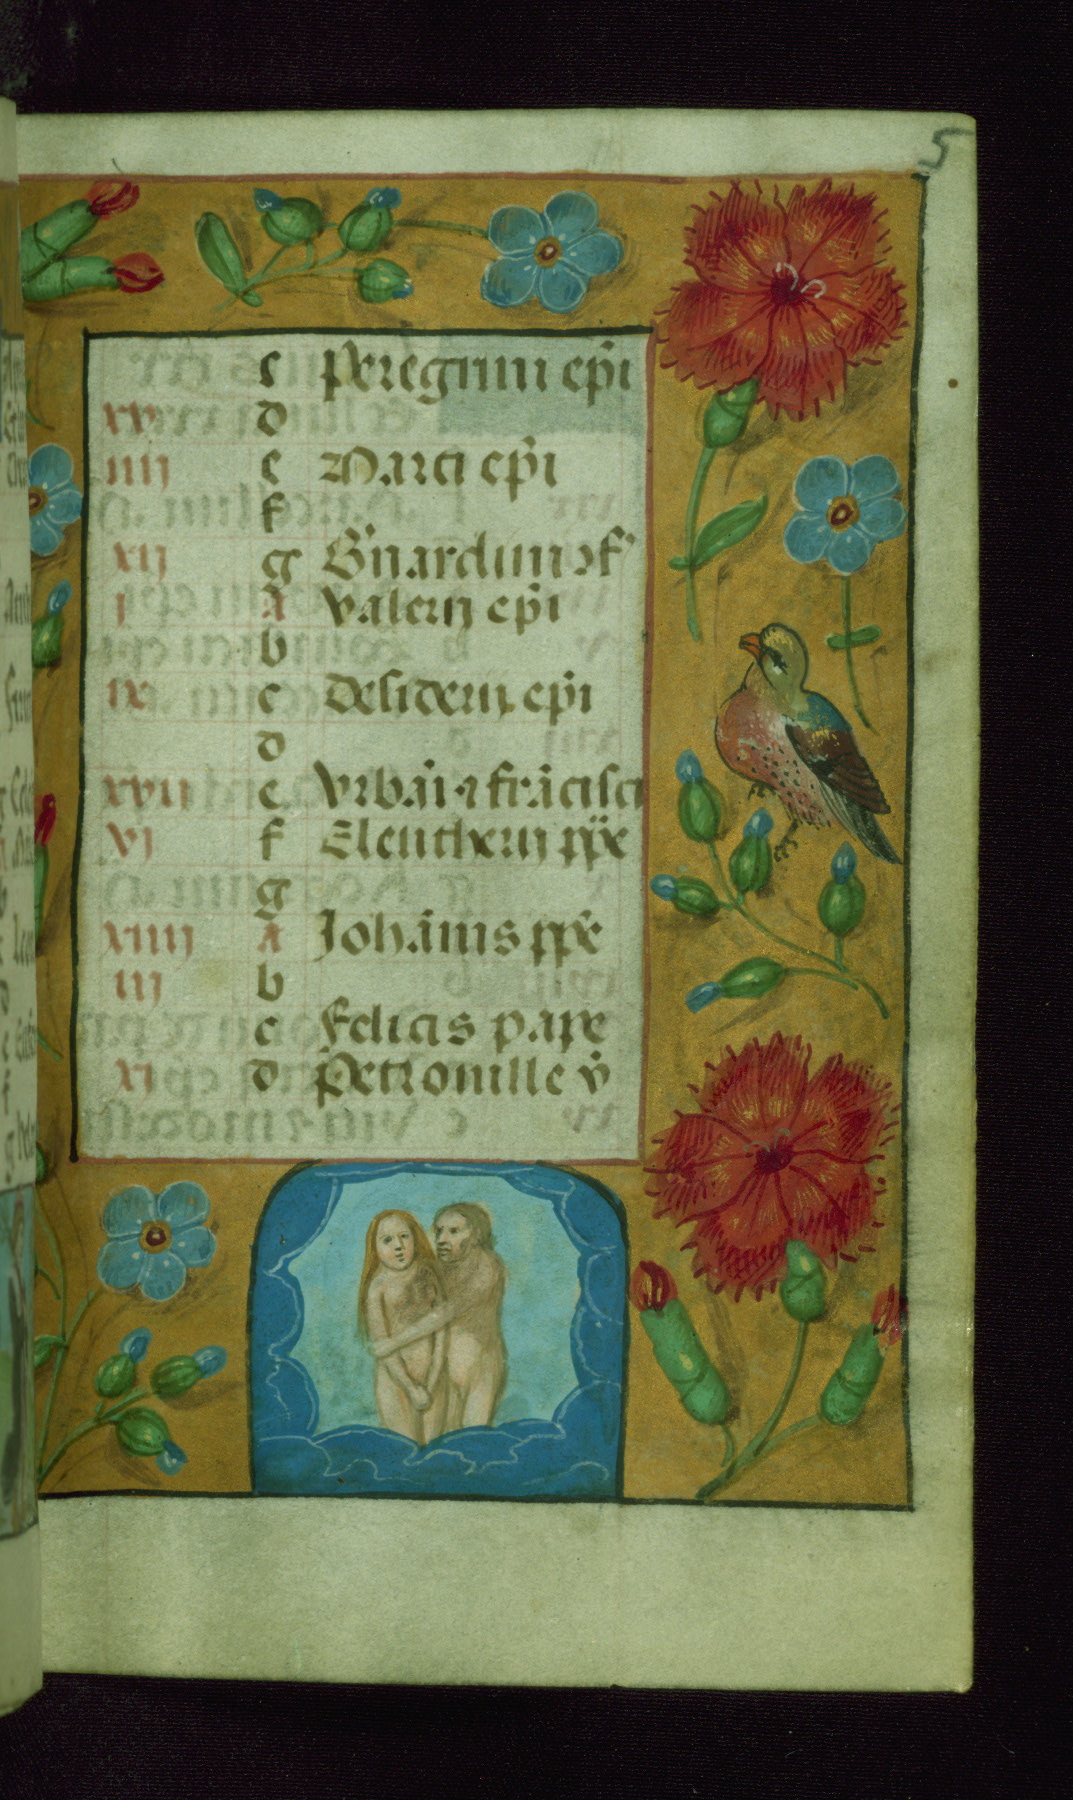 5
c peregrini ep̄i
xv d
iiij e Marci ep̄i
f
xij g B'nardini ɔf'
j A valerij ep̄i
b
ix c desiderij ep̄i
d
xvij e vrbāi ⁊ frācisci
vj f Eleutherij pp̄e
g
xiiij A Johānis pp̄e
iij b
c Felicis pape
xj d Petronille v̄